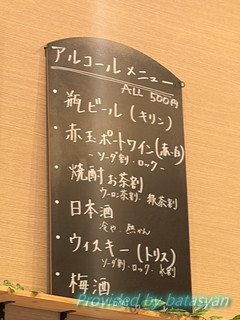 アルコールメニュー
ALL 500円
・瓶ビール(キリン)
・赤玉ポートワイン(赤・白)
-ソーダ割・ロック-
・焼酎お茶割
ウーロン茶割・緑茶割
・日本酒
冷や・熱かん
・ウィスキー(トリス)
ソーダ割・ロック・水割
・梅酒
Provided by batasyan